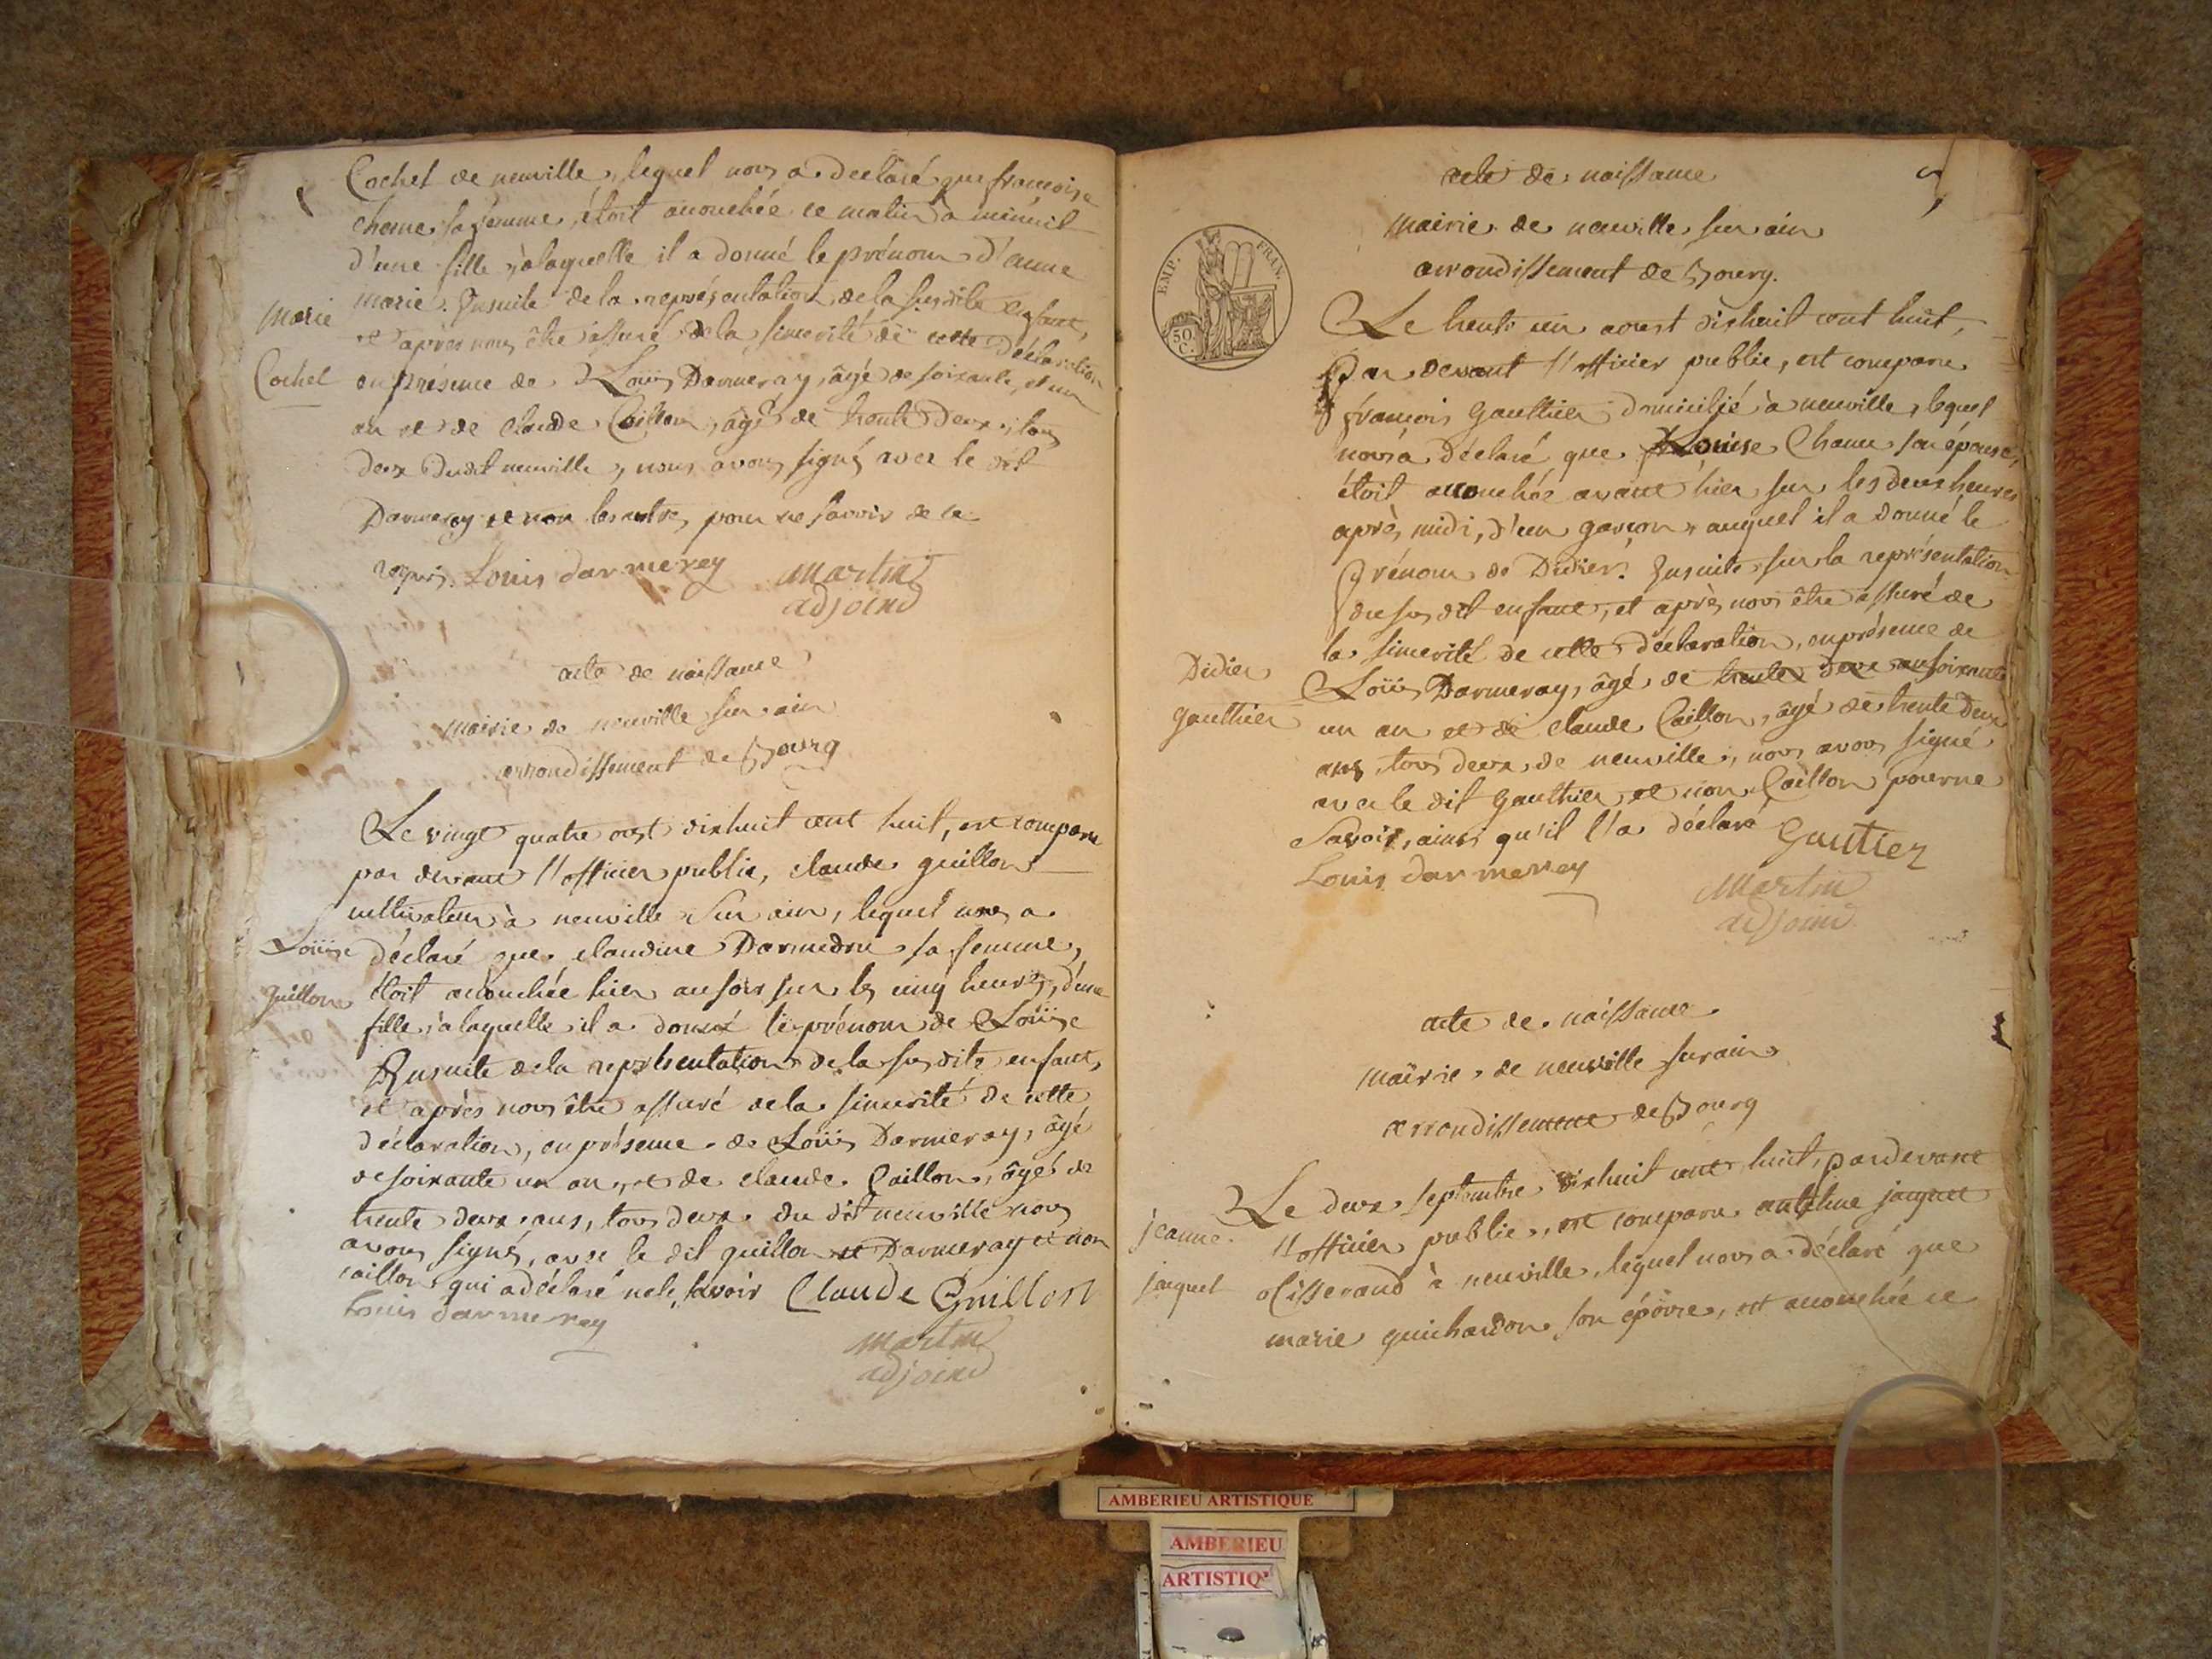 Cochet de neuville, lequel nous a declaré que francoise
cherne sa femme, étoit accouchée ce matin à minuit
d'une fille, à laquelle il a donné le prénom d'anne
marie. Ensuite de la représentation de la susdite enfant,
et après nous être assuré de la sincerité de cette déclaration
en présence de Loüis Darmeray, âgé de soixante et un
an et de claude Caillon, âgé de trente deux, tous
deux dudit neuville, nous avons signé avec le dit
Darmeray et non les autres pour ne savoir de ce
requis. Louis darmerey martin
adjoind
Marie
Cochet
acte de naissance
mairie de neuville sur ain
arrondissement de Bourg
Le vingt quatre oust dixhuit cent huit, est comparu
par devant l'officier public, claude guillon
cultivateur à neuville sur ain, lequel nous a
déclaré que claudine Darmedru sa femme,
étoit accouchée hier au soir sur les cinq heures, d'une
fille, à laquelle il a donné le prénom de Loüise
Ensuite de la représentation de la susdite enfant,
et après nous être assuré de la sincérité de cette
déclaration, en présence de Loüis Darmeray, âgé
de soixante un an, et de claude Caillon, âgé de
trente deux ans, tous deux du dit neuville nous
avons signé, avec le dit guillon et Darmeray et non
caillon qui a déclaré ne le savoir Claude Guillon
Louis darmerey
martin
adjoind
Loüise
guillon
acte de naissance
mairie de neuville sur ain
arrondissement de Bourg.
EMP. FRAN.
50 C.
Le trente un aoust dixhuit cent huit,
Par devant l'officier public, est comparu
françois Gauthier domicilié à neuville, lequel
nous a déclaré que Louise Chanu son épouse,
étoit accouchée avant hier sur les deux heures
après midi, d'un garçon, auquel il a donné le
prénom de Didier. Ensuite sur la représentation
du susdit enfant, et après nous être assuré de
la sincerité de cette déclaration, en présence de
Loüis Darmeray, âgé de trente deux an soixante
un an et de claude Caillon, âgé de trente deux
ans, tous deux de neuville, nous avons signé
avec le dit Gauthier, et non Caillon pour ne
Savoir, ainsi qu'il l'a déclaré Gautier
Louis darmerey
Martin
adjoind
Didier
gauthier
acte de naissance
mairie de neuville sur ain
arrondissement de Bourg
Le deux septembre dixhuit cent huit, pardevant
l'officier public, est comparu antelme jacquet
tisserand à neuville, lequel nous a déclaré que
marie guichardon son épouse, est accouchée ce
jeanne
jacquet
AMBERIEU ARTISTIQUE
AMBERIEU
ARTISTIQ'